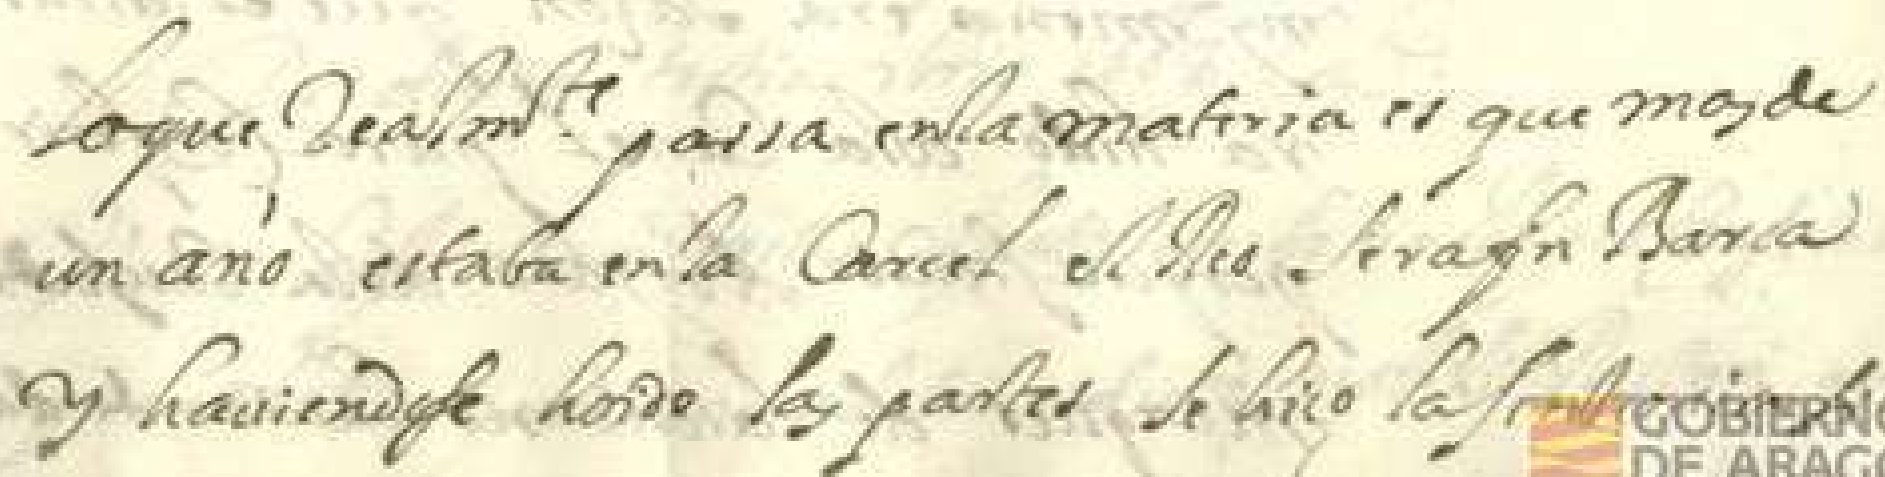 Loque Realmte passa enla materia es que mas de
un año estaba enla Carcel el Reo Serafin Barca
y haviendose hoido las partes se hiço la
GOBIERNO
DE ARAGO